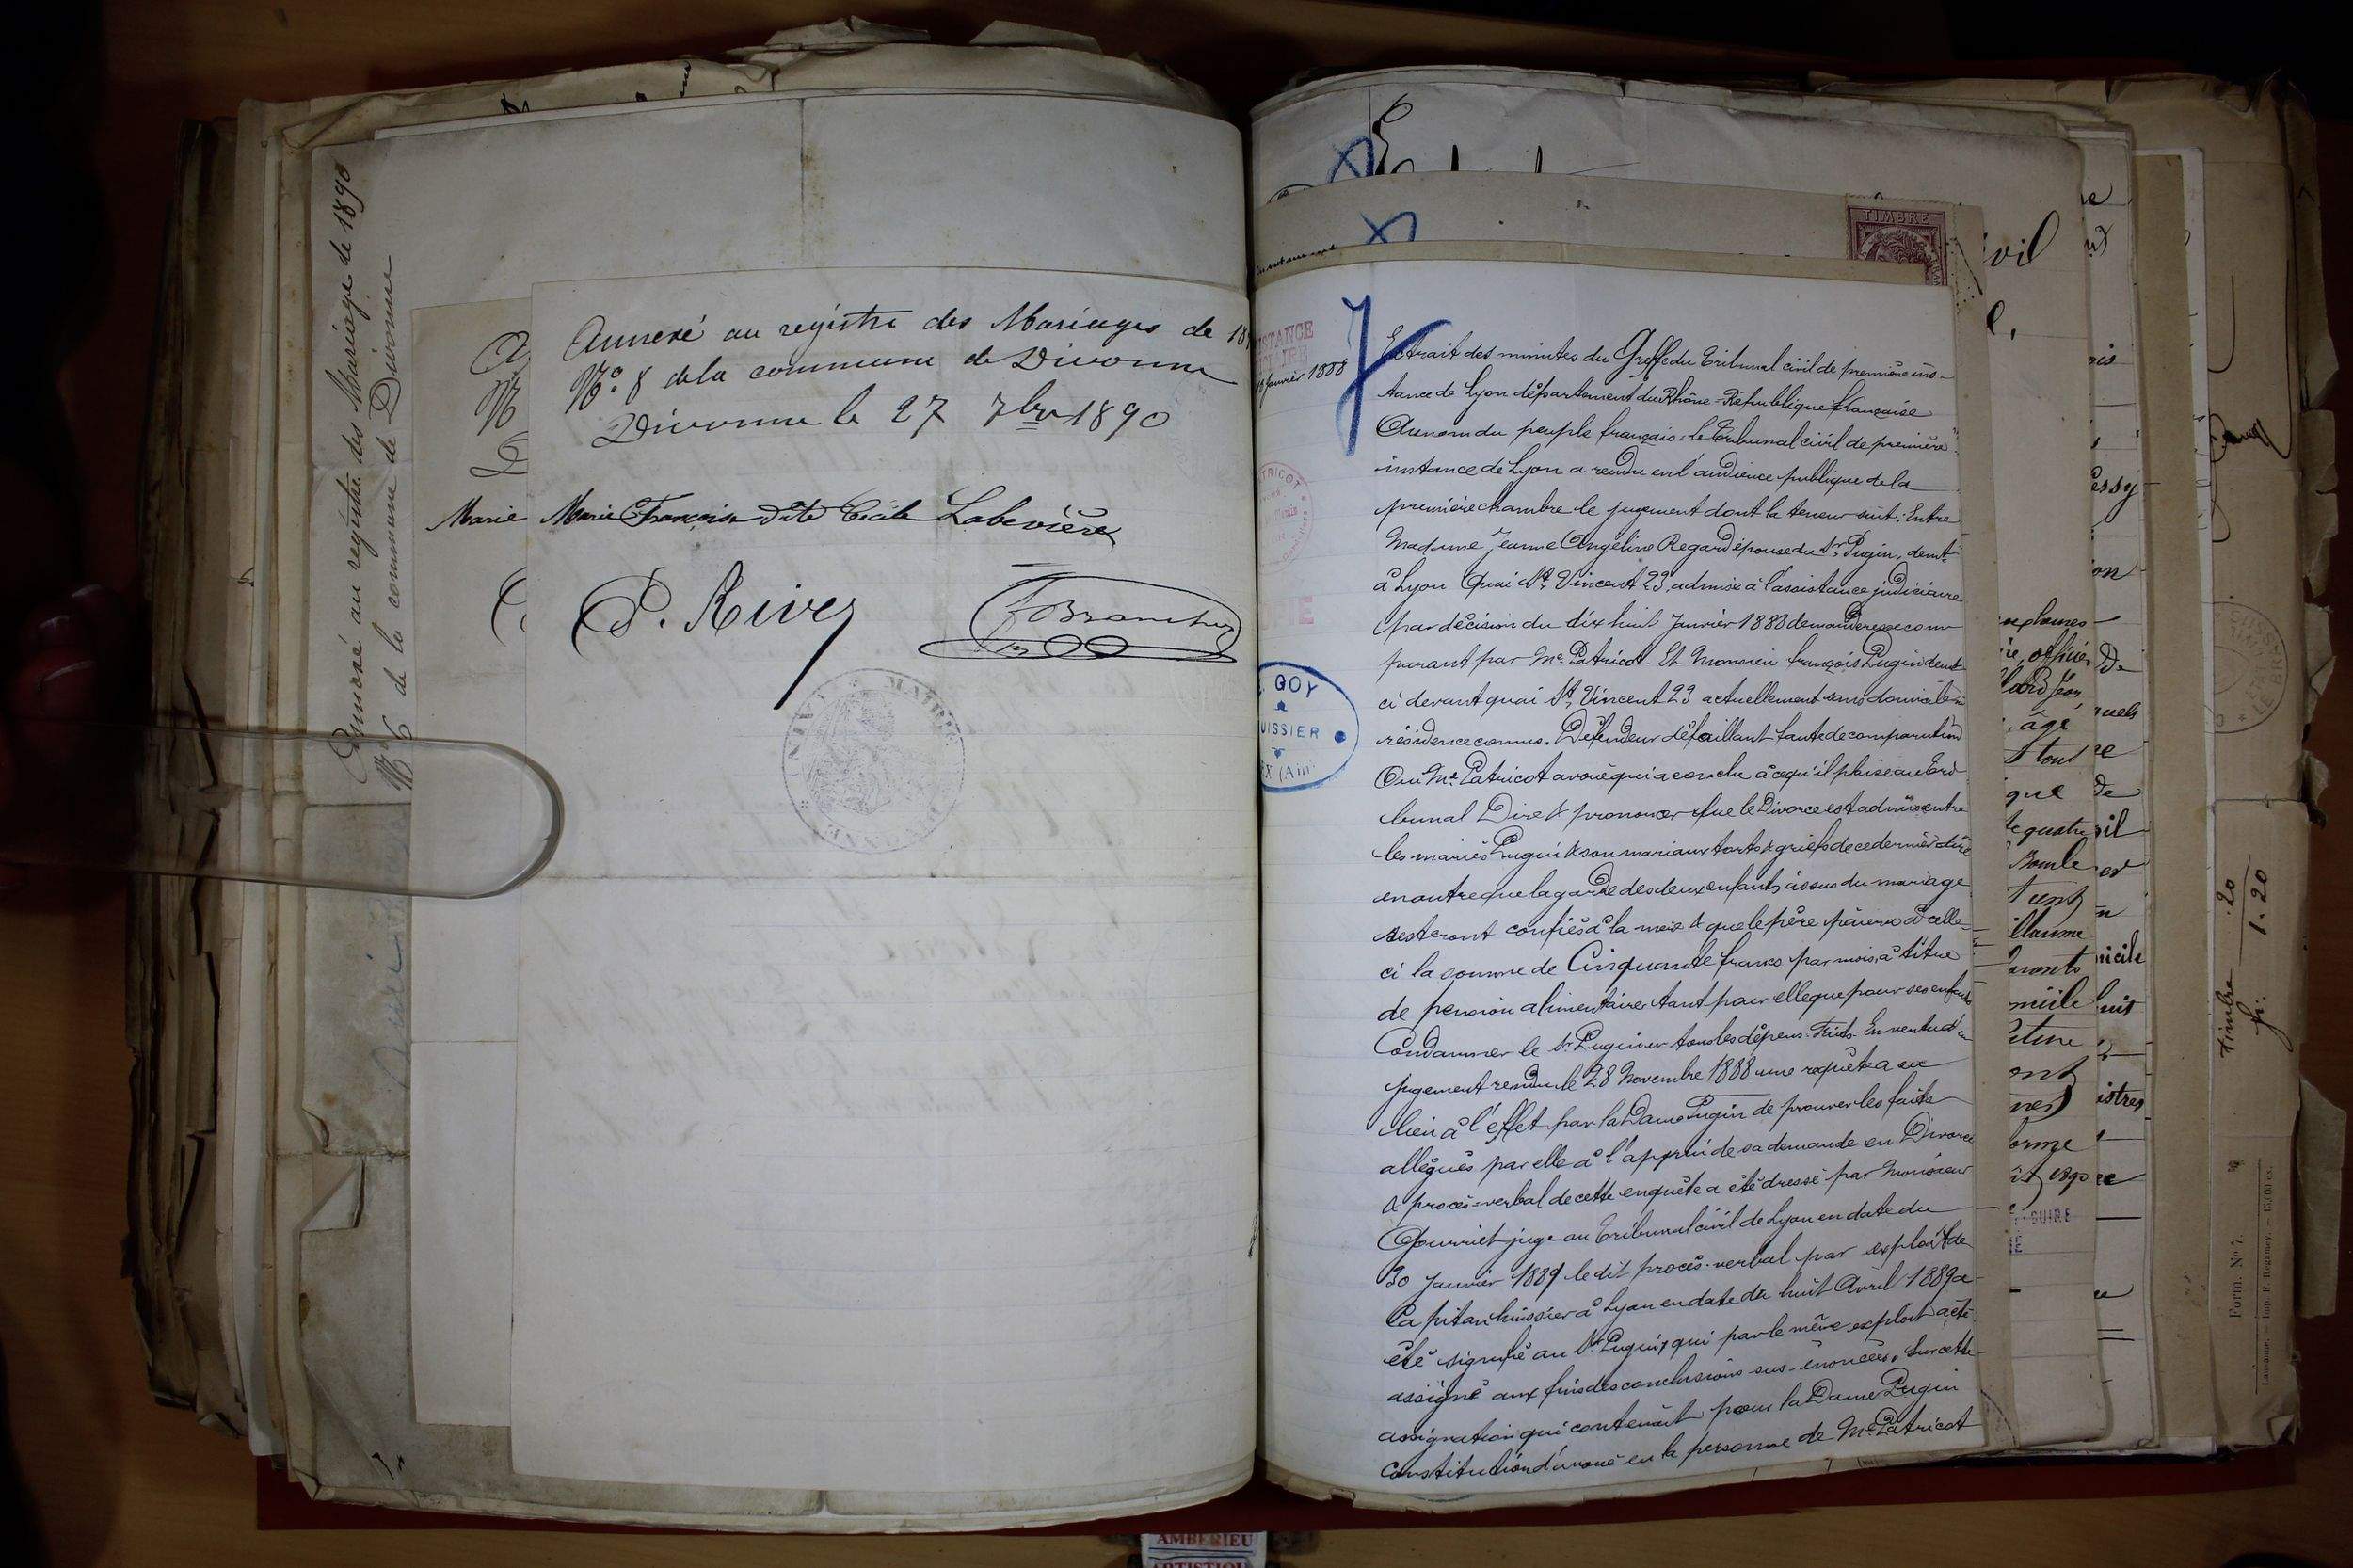 Annexé au registre des Mariages de 1890
No 6 de la commune de Divonne
Annexé au registre des Mariages de 18
No. 8 de la commune de Divonne
Divonne le 27 7bre 1890
Marie
Marie Françoise dite Cécile Labevière
P. Rive
MAIRIE
TIMBRE
STANCE
Janvier 1888
TRICOT
GOY
UISSIER
X (Ain)
Extrait des minutes du Greffe du Tribunal civil de première ins-
tance de Lyon département du Rhône - République française
Au nom du peuple français, le Tribunal civil de première
instance de Lyon a rendu en l'audience publique de la
première chambre le jugement dont la teneur suit: Entre
Madame Jeanne Angéline Regard épouse du Sr. Pugin, demt
à Lyon Quai St. Vincent 23, admise à l'assistance judiciaire
par décision du dix huit Janvier 1888 demanderesse com
parant par Me. Patricot. Et Monsieur françois Pugin demt
ci devant quai St. Vincent 23 actuellement sans domicile ni
résidence connus. Défendeur défaillant faute de comparution
Oui Me Patricot avoué qui a conclu à ce qu'il plaise au Tri-
bunal Dire & prononcer que le Divorce est admis entre
les mariés Pugin & son mari aux torts & griefs de ce dernier dire
en outre que la garde des deux enfants issus du mariage
resteront confiés à la mère & que le père paiera à celle-
ci la somme de Cinquante francs par mois, à titre
de pension alimentaire tant pour elle que pour ses enfants
Condamner le Sr. Pugin en tous les dépens. Faits. En vertu d'un
jugement rendu le 28 Novembre 1888 une requête a eu
lieu à l'effet par la Dame Pugin de prouver les faits
allégués par elle à l'appui de sa demande en Divorce
& procès-verbal de cette enquête a été dressé par Monsieur
juge au Tribunal civil de Lyon en date du
30 Janvier 1889 le dit procès-verbal par exploit de
Capitan huissier à Lyon en date du huit Avril 1889 a
été signifié au Sr. Pugin, qui par le même exploit a été
assigné aux fins des conclusions sus-énoncées. Sur cette
assignation qui contenait pour la Dame Pugin
constitution d'avoué en la personne de Me. Patricot
vil
essy
âgé
que
quatre
illaume
orme
1890
Timbre .20
fr. 1.20
Form. No 7.
Lausanne. — Imp. F. Regamey.
AMBERIEU